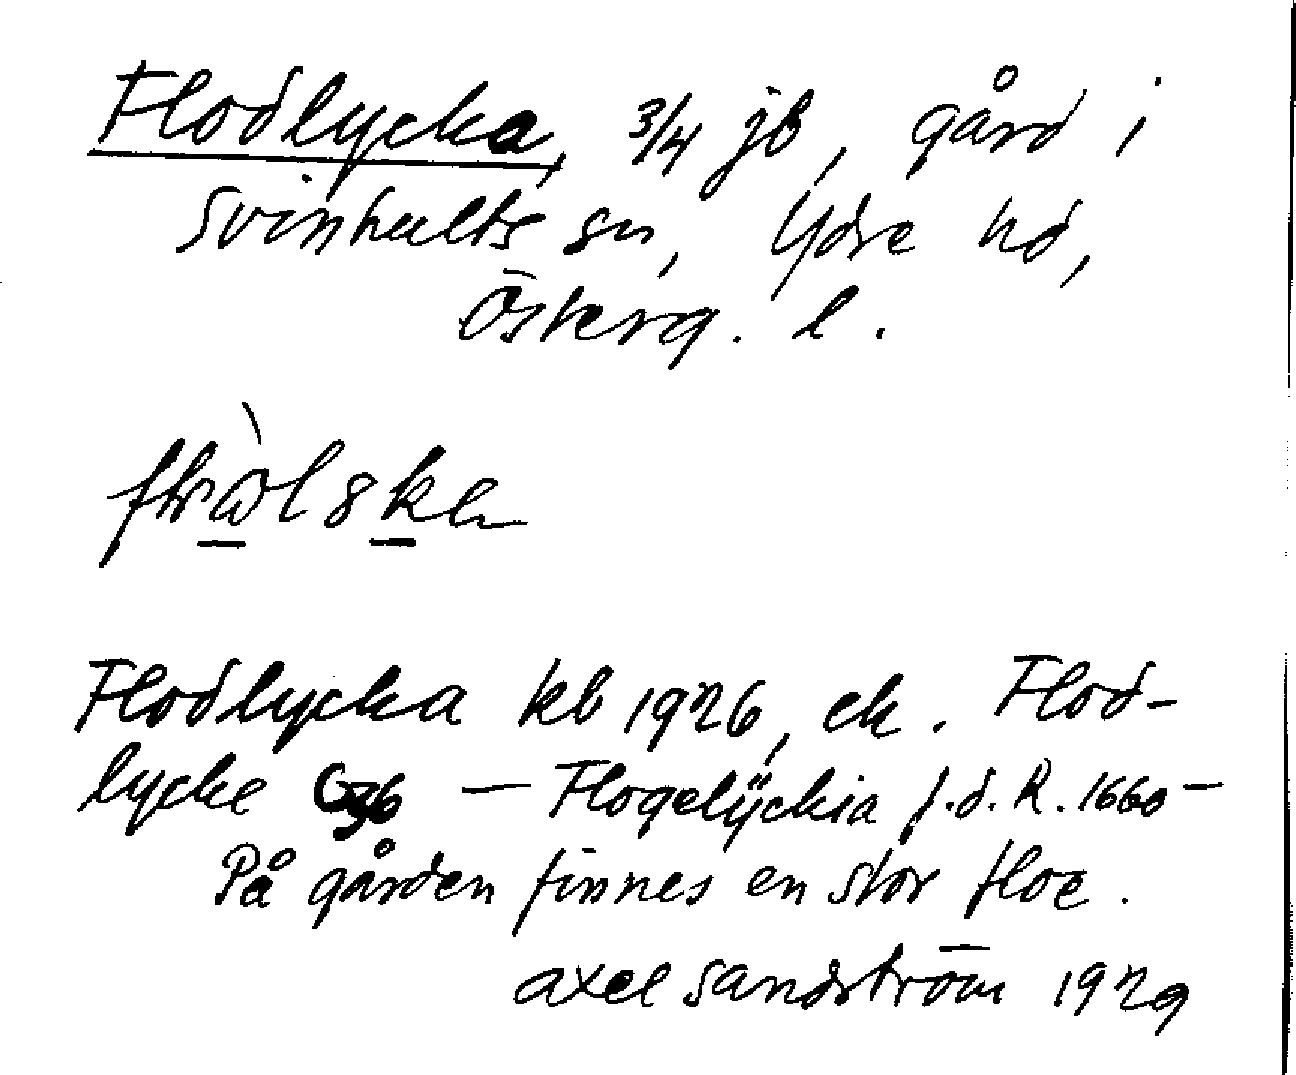 Flodlycka, 3/4 jb, gård i
Svinhults sn, Ydre hd,
Österg. l.
Flodlycka kb 1926, ek. Flod-
lycke G36 — Flogelÿckia j.d.R. 1660 —
På gården finnes en stor floe.
Axel Sandström 1929